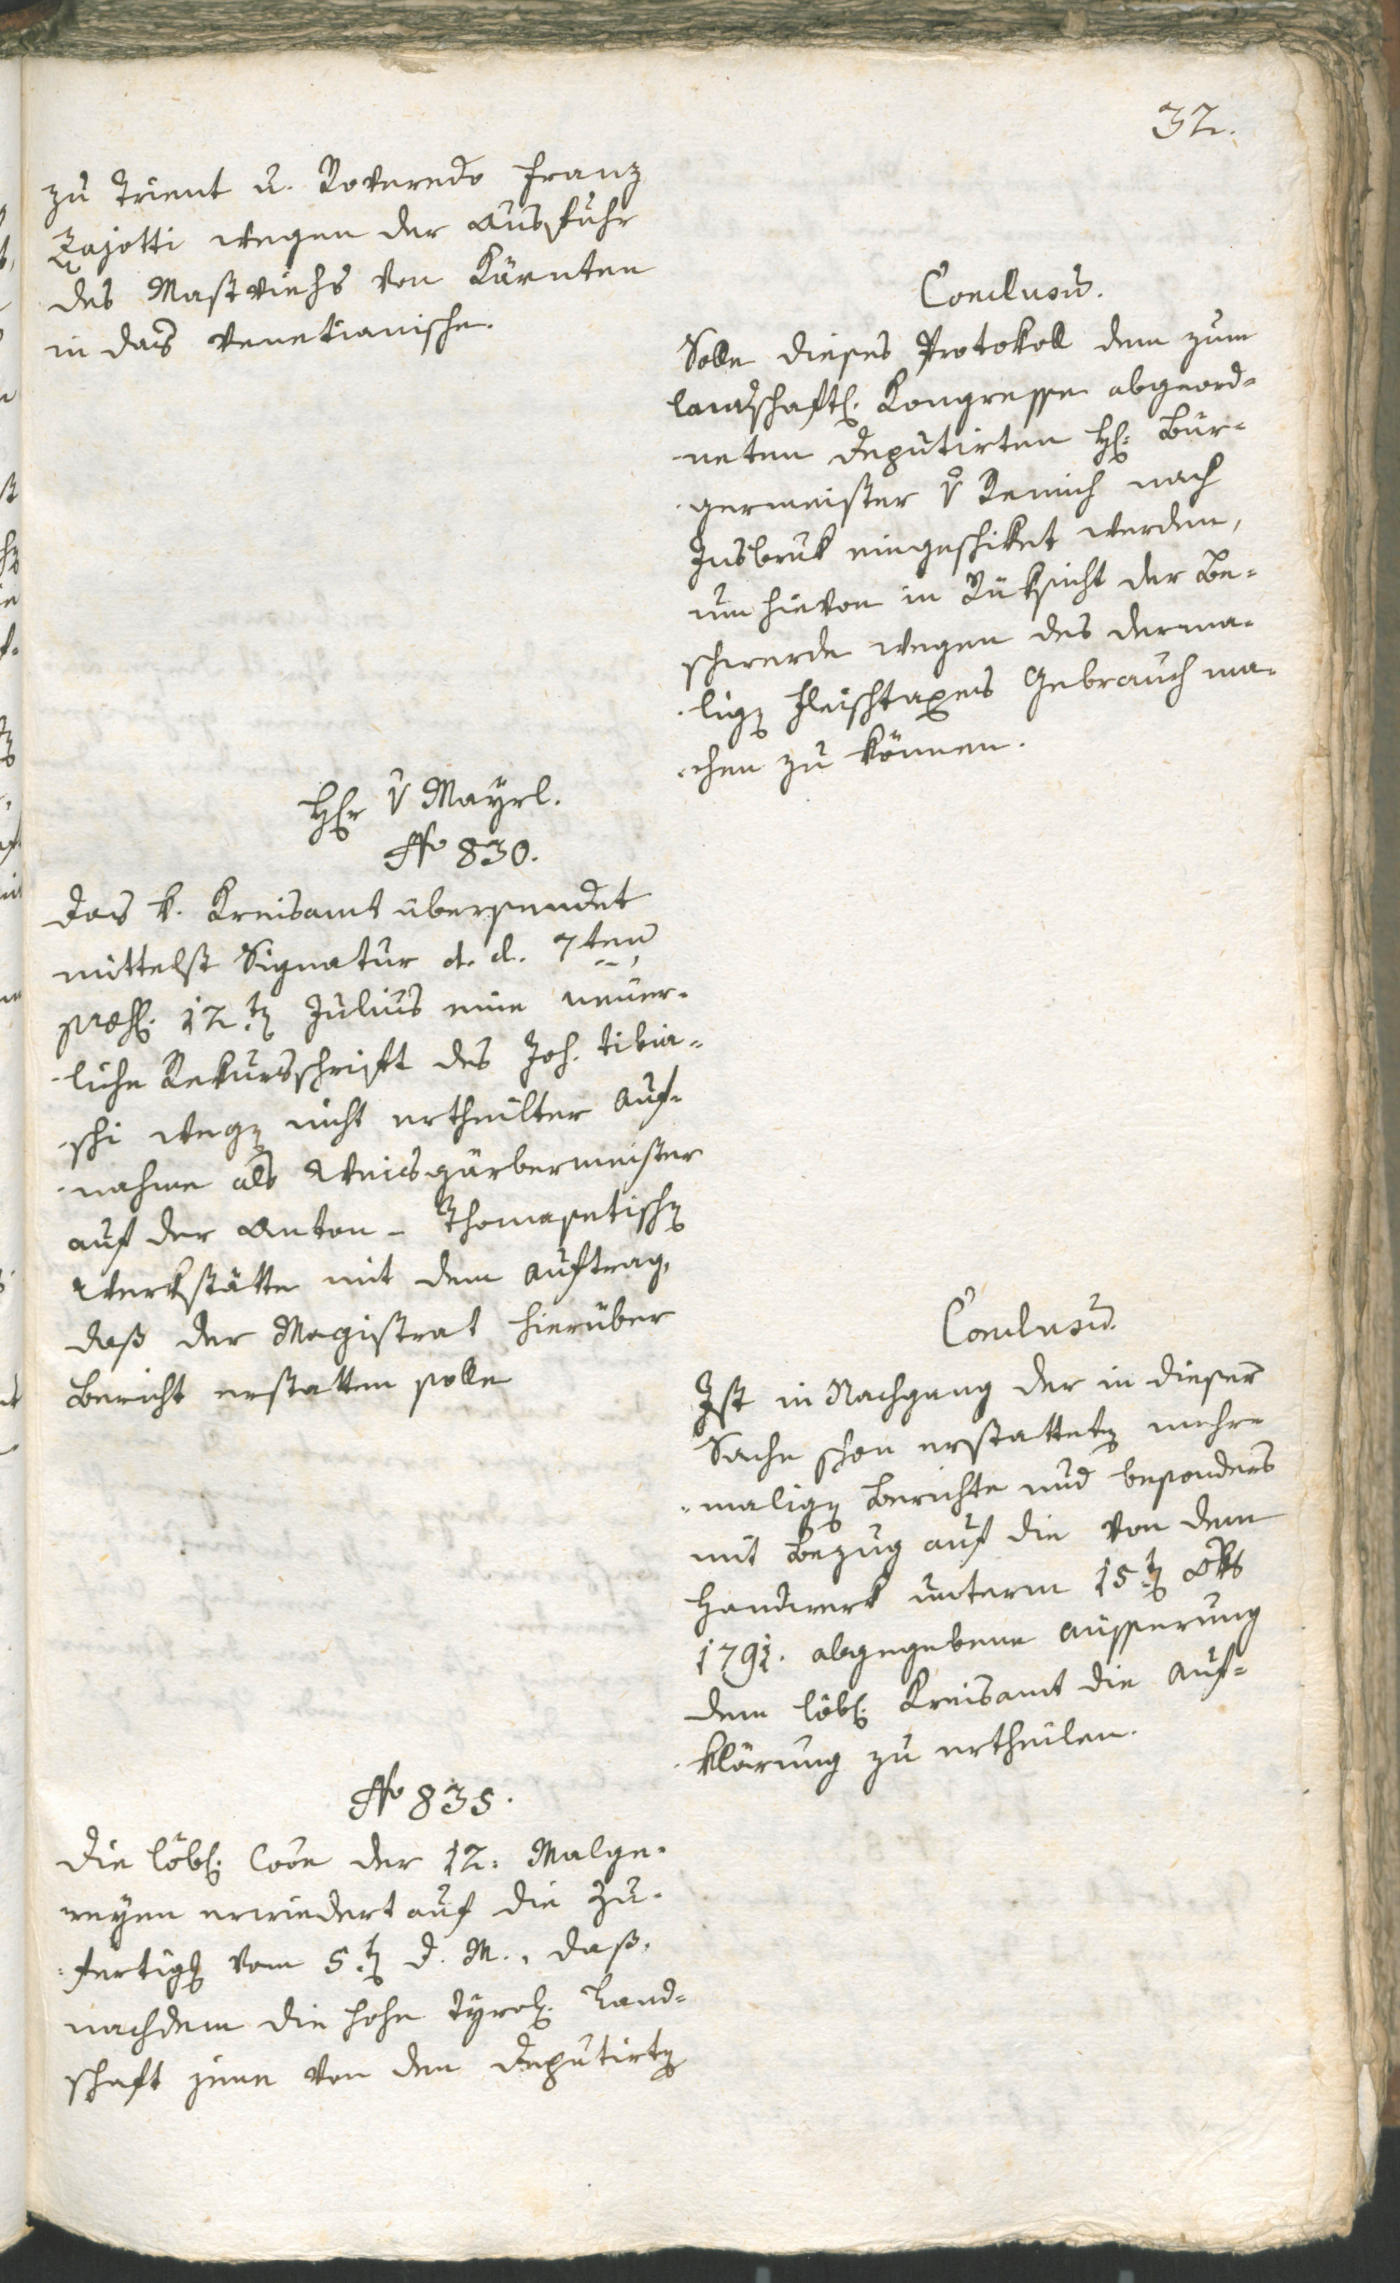 32.
zu Trient u. Roveredo Franz
Zajotti wegen der Ausfuhr
des Mastviehs von Kärnten
in das Venetianische.
Conclusũ.
Solle dieses Protokoll dem zum
landschaftl. Kongresse abgeord-
-neten Deputirten H: Bür-
-germeister v Remich nach
Insbruk eingeschiket werden,
um hievon in Rüksicht der Be-
schwerde wegen des derma-
-ligen Fleischtaxes Gebrauch ma-
-chen zu können.
Hr v Mayrl.
No 830.
Das k. Kreisamt übersendet
mittelst Signatur d. d. 7ten
præs. 12ten Julius eine neuer-
-liche Rekursschrift des Joh. Tibia-
-schi wegen nicht ertheilter Auf-
-nahme als Weisgärbermeister
auf der Anton- Thomasetischen
Werkstätte mit dem Auftrag,
daß der Magistrat hierüber
Bericht erstatten solle
Conclusũ.
Ist in Nachgang der in dieser
Sache schon erstatteten mehr-
-maligen Berichte und besonders
mit Bezug auf die von dem
Handwerk unterm 15ten 8bris
1791. abgegebene Äusserung
dem löbl. Kreisamt die Auf-
-klärung zu ertheilen.
No 835.
Die löbl. Coõn der 12. Malge-
reyen erwiedert auf die Zu-
-fertigg vom 5ten d. M., daß,
nachdem die hohe Tyrol. Land-
schaft jene von den Deputirten